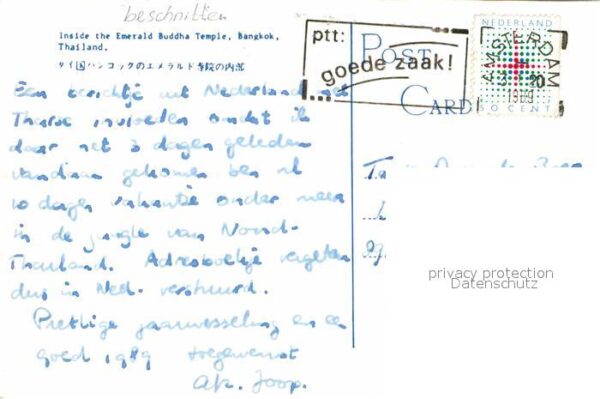 beschnitten
Inside the Emerald Buddha Temple, Bangkok,
Thailand.
タイ国バンコックのエメラルド寺院の内部
ptt:
goede zaak!
POST
CARD
NEDERLAND
50 CENT
AMSTERDAM
1989
Een berichtje uit Nederland met
Thaise invloeden omdat ik
daar net 3 dagen geleden
vandaan gekomen ben na
10 dagen vakantie onder meer
in de jungle van Noord-
Thailand. Adresboekje vergeten
dus in Ned. verstuurd.
Prettige jaarwisseling en een
goed 1989 toegewenst
Joop.
privacy protection
Datenschutz